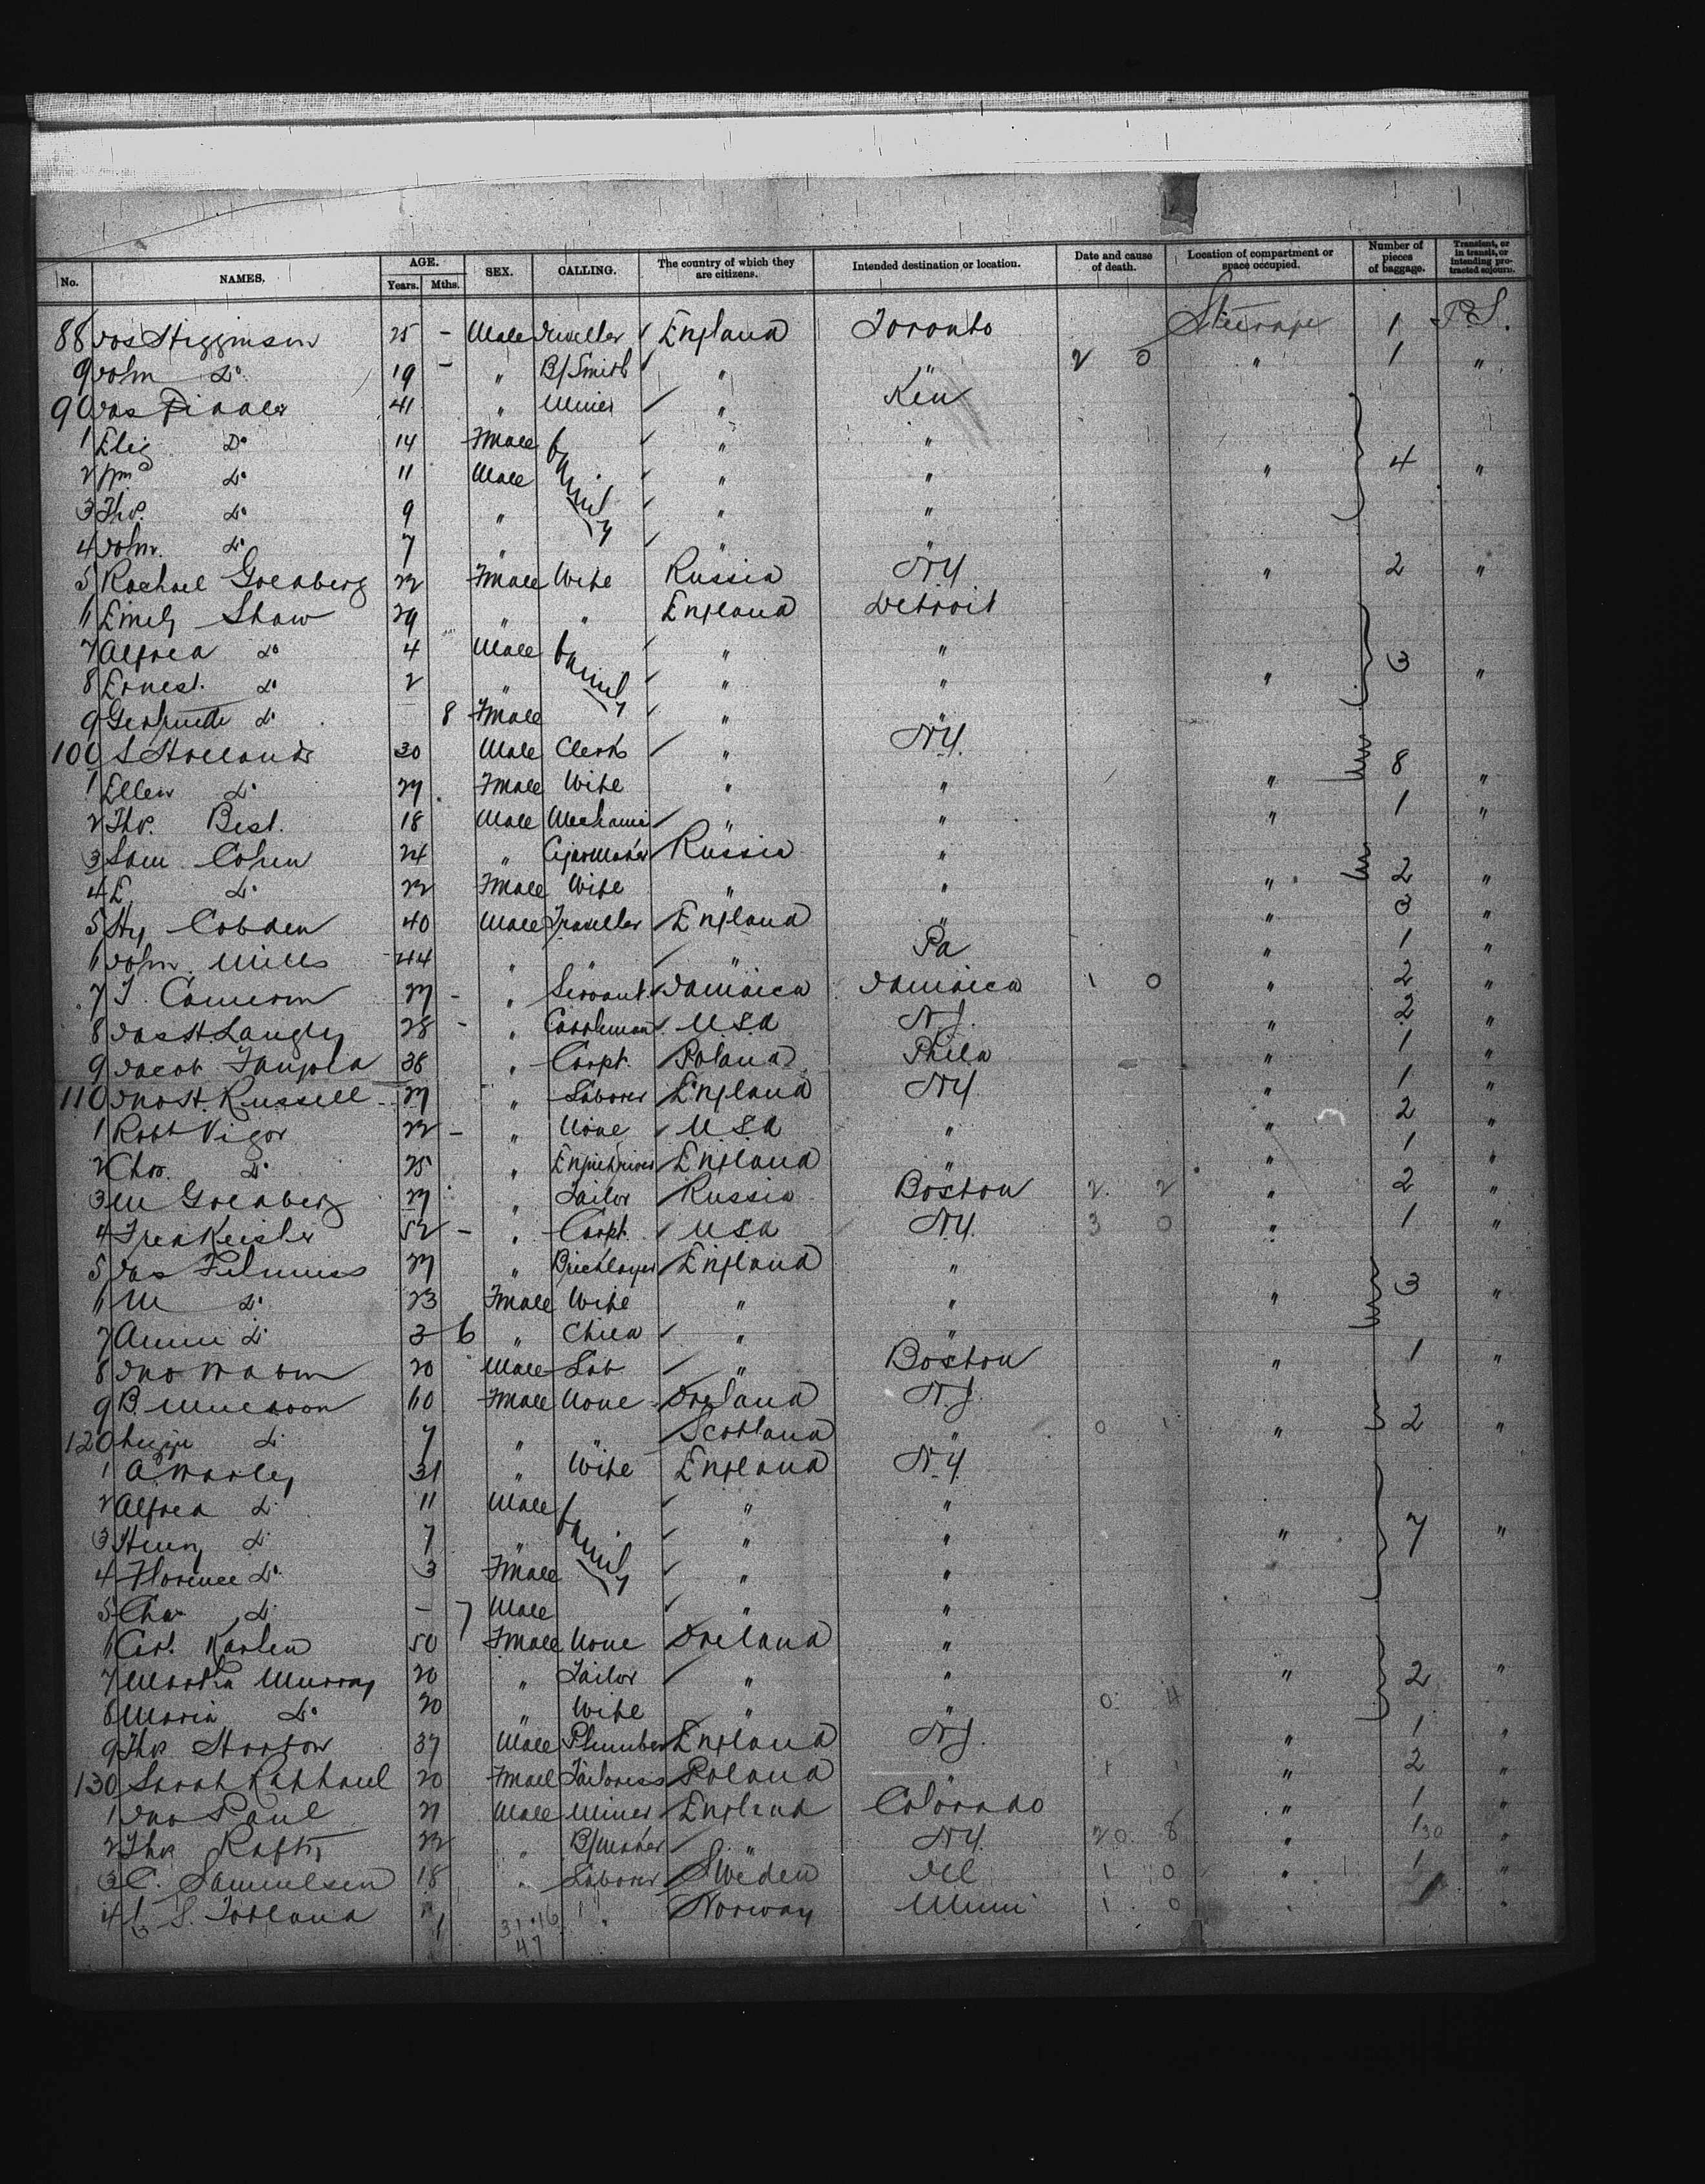 No. NAMES. AGE. Years. Mths. SEX. CALLING. The country of which they are citizens. Intended destination or location. Date and cause of death. Location of compartment or space occupied. Number of pieces of baggage. Transient, or in transit, or intending protracted sojourn.
88 Jas Higginson 25 - Male Traveller England Toronto Steerage 1 P.S.
9 John Do 19 - " B/Smith " " 2 0 " 1 "
90 Jas 41 " Miner " Ken
1 Eliz Do 14 Fmale family " "
2 Wm Do 11 Male " " " 4 "
3 Tho. Do 9 " " "
4 John Do 7 " " "
5 Rachael Goldberg 22 Fmale Wife Russia N.Y. " 2 "
6 Emily Shaw 29 " " England Detroit
7 Alfred Do 4 Male family " " 3
8 Ernest Do 2 " " " " "
9 Gertrude Do 8 Fmale " "
100 S Hollands 30 Male Clerk " N.Y. 8
1 Ellen Do 27 Fmale Wife " " " "
2 Tho. Best 18 Male Mechanic " " " 1 "
3 Sam Cohen 24 " Cigarmaker Russia "
4 E Do 22 Fmale Wife " " " 2 "
5 Hy Cobden 40 Male Traveller England " " 3 "
6 John Mills 44 " " " Pa " 1 "
7 J. Cameron 27 - " Servant Jamaica Jamaica 1 0 " 2 "
8 Jas H. Langley 28 - " Cattleman U.S.A N.J. " 2 "
9 Jacob 38 " Carpt. Poland Phila " 1 "
110 Jno H. Russell 27 " Laborer England N.Y. " 1 "
1 Robt Vigor 22 - " None U.S.A " " 2 "
2 Chas. Do 25 " Enginedriver England " " 1 "
3 M Goldberg 27 " Tailor Russia Boston 2 2 " 2 "
4 Fred Keister 52 - " Carpt. U.S.A N.Y. 3 0 " 1 "
5 Jas 27 " Bricklayer England "
6 M Do 23 Fmale Wife " " " 3 "
7 Annie Do 3 6 " Child " "
8 Jno 20 Male Lab " Boston " 1 "
9 B. Muldoon 60 Fmale None Ireland N.J.
120 Lizzie Do 7 " " Scotland " 0 1 " 2 "
1 A. 31 " Wife England N.Y.
2 Alfred Do 11 Male family " "
3 Henry Do 7 " " " " 7 "
4 Florence Do 3 Fmale " "
5 Chas Do - 7 Male " "
6 Cath. 50 Fmale None Ireland "
7 Martha Murray 20 " Tailor " " " 2 "
8 Maria Do 20 " Wife " " 0 4
9 Tho Horton 37 Male Plumber England N.J. " 1 "
130 Sarah Raphael 20 Fmale Tailoress Poland " 1 1 " 2 "
1 Jno Paul 21 Male Miner England Colorado " 1 "
2 Tho 22 " B/maker " N.Y. 20 8 " 1 30 "
3 C. Samuelsen 18 " Laborer Sweden Ill 1 0 " 1 "
4 S. " Norway Minn 1 0 " "
31 16
47